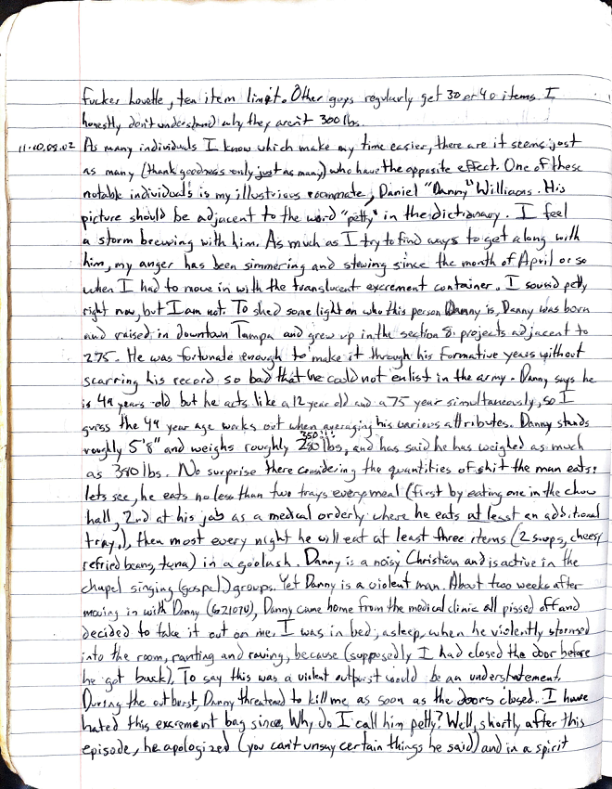 fucker Lovelle, ten item limit. Other guys regularly get 30 or 40 items. I
honestly don't understand why they aren't 300 lbs.
11.10.05.02 As many individuals I know which make my time easier, there are it seems just
as many (thank goodness only just as many) who have the opposite effect. One of these
notable individuals is my illustrious roommate, Daniel "Danny" Williams. His
picture should be adjacent to the word "petty" in the dictionary. I feel
a storm brewing with him. As much as I try to find ways to get along with
him, my anger has been simmering and stewing since the month of April or so
when I had to move in with the translucent excrement container. I sound petty
right now, but I am not. To shed some light on who this person Danny is, Danny was born
and raised in downtown Tampa and grew up in the section 8 projects adjacent to
275. He was fortunate enough to make it through his formative years without
scarring his record so bad that he could not enlist in the army. Danny says he
is 49 years old but he acts like a 12 year old and a 75 year simultaneously, so I
guess the 49 year age works out when averaging his various attributes. Danny stands
roughly 5'8" and weighs roughly 350!! lbs, and has said he has weighed as much
as 380 lbs. No surprise there considering the quantities of shit the man eats:
lets see, he eats no less than two trays every meal (first by eating one in the chow
hall, 2nd at his job as a medical orderly where he eats at least an additional
tray.), then most every night he will eat at least three items (2 soups, cheesy
refried beans, tuna) in a goolash. Danny is a noisy Christian and is active in the
chapel singing (gospel) groups. Yet Danny is a violent man. About two weeks after
moving in with Danny (621070), Danny came home from the medical clinic all pissed off and
decided to take it out on me. I was in bed, asleep, when he violently stormed
into the room, ranting and raving, because (supposedly I had closed the door before
he got back). To say this was a violent outburst would be an understatement.
During the outburst, Danny threatened to kill me as soon as the doors closed. I have
hated this excrement bag since. Why do I call him petty? Well, shortly after this
episode, he apologized (you can't unsay certain things he said) and in a spirit